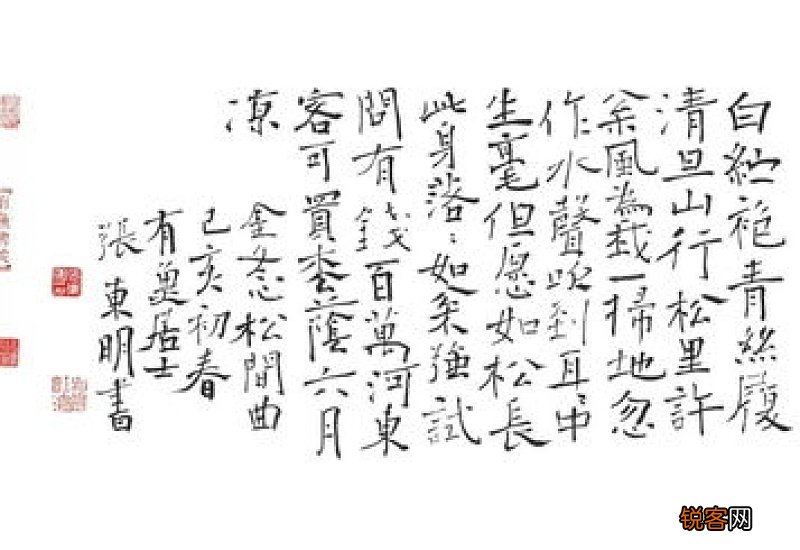 白紵袍青絲履
清旦山行松里許
余風為我一掃地忽
作水聲吹到耳耳中
生毫但願如松長
此身落〻如柔強試
問有錢百萬河東
客可買松蔭六月
涼
金冬心松間曲
己亥初春
有巢居士
張東明書
锐客网